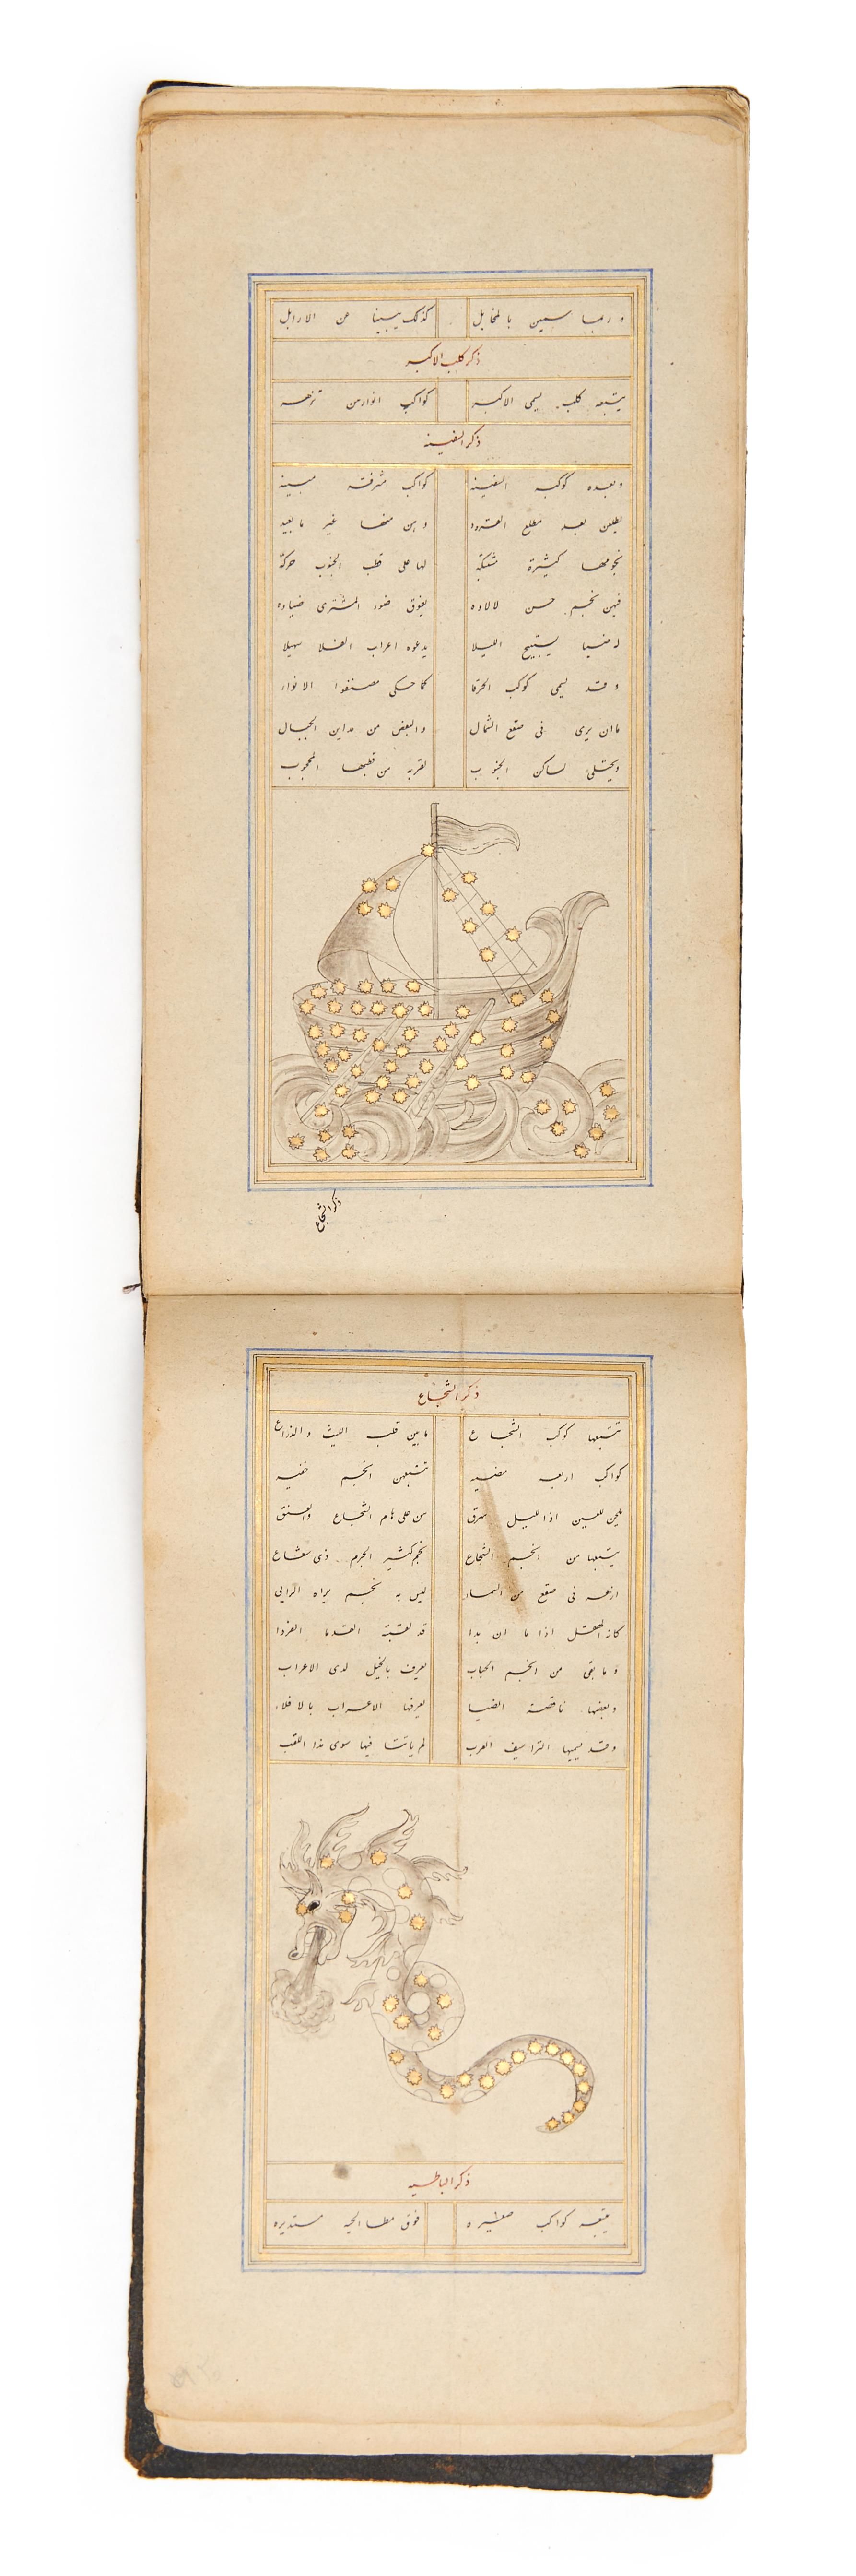 و ربما سمين بالمخابل كذلك يبينا عن الارابل
ذكر كلب الاكبر
يتبعه كلب يسمى الاكبر كواكب انوارهن تزهر
ذكر السفينه
وبعده كوكبه السفينه كواكب مشرقه مبينه
يطلعن بعد مطلع القرود و هن منها غير ما بعيد
نجومها كثيرة مشتبكه لها على قطب الجنوب حركه
فيهن نجم حسن لالاوه يفوق ضوء المشترى ضياوه
له ضيا يستبيح الليلا يدعوه اعراب الفلا سهيلا
و قد يسمى كوكب الخرقا كما حكى مصنفوا الانوار
ما ان يرى فى صقع الشمال والبعض من مداين الجبال
ويجتلى لساكن الجنوب لقربه من قطبها المحجوب
ذكر الشجاع
ذكر الشجاع
تتبعها كوكب الشجاع ما بين قلب الليث و الذراع
كواكب اربعه مضيه تتبعهن انجم خفيه
يلحن للعين اذا الليل سرق من على هام الشجاع والعنق
يتبعها من انجم الشجاع نجم كثير الجرم ذى شعاع
ازهر فى صقع من السماء ليس به نجم يراه الرايى
كانه اذا ما ان بدا قد
و ما بقى من انجم الحباب يعرف بالخيل لدى الاعراب
وبعضها ناقصة الضيا يعرفها الاعراب بالافلاء
و قد يسميها الشراسيف العرب لم ياتنا فيها سوى هذا اللقب
ذكر الباطيه
يتبعه كواكب صغيره فوق مطا الحيه مستديره